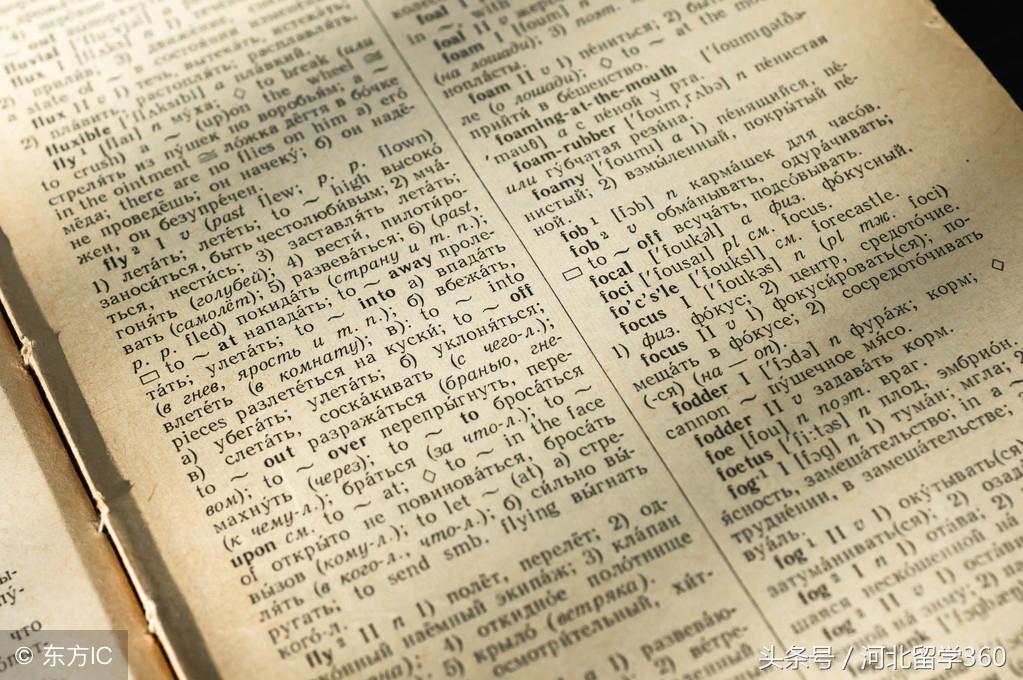 fluvial
flux I
прилив; 3) состояния
state of ~
flux II v 1) течь, вытекать, истекать;
2) плавить, растоплять, расплавлять.
fluxible a плавкий.
fly¹ [flai] n муха; ◇ to break (или
to crush) a ~ (up)on the wheel ≅
стрелять из пушек по воробьям; a ~
in the ointment ≅ ложка дёгтя в бочке
мёда; there are no flies on him а) его
не проведёшь, он начеку; б) он надё-
жен, он безупречен.
fly² I v (past flew; p. p. flown)
1) летать; лететь; to ~ high высоко
заноситься, быть честолюбивым; 2) мча-
ться, нестись; 3) заставлять летать;
гонять (голубей); 4) вести, пилотиро-
вать (самолёт); 5) развеваться; 6) (past,
p. p. fled) покидать (страну и т. п.);
▭ to ~ at нападать; to ~ away улетать; проле-
тать; to ~ into а) впадать
(в гнев, ярость и т. п.); б) вбежать,
влететь (в комнату); в): to ~ into
pieces разлететься на куски; to ~ off
а) убегать; улетать; б) уклоняться;
в) слетать, соскакивать (с чего-л.);
to ~ out разражаться (бранью, гне-
вом); to ~ over перепрыгнуть, пере-
махнуть (через); to ~ to бросаться
(к чему-л.); браться (за что-л.); to ~
upon см. to ~ at; ◇ to ~ in the face
of открыто не повиноваться, бросать
вызов (кому-л.); to let ~ (at) а) стре-
лять (в кого-л., что-л.); б) сильно вы-
ругать; to send smb. flying выгнать
кого-л.
fly² II n 1) полёт, перелёт; 2) од-
оконный наёмный экипаж; 3) клапан
4) откидное полотнище
5) крыло (ветряка).
осмотрительный, хит-
1) развеваю-
2) ветре-
foal II
foam I [foum] n
(на лошади); 3) поэт.
пласты.
foam II v 1) пениться; 2) быть
ле (о лошади); ◇ to ~ at the mouth
прийти в бешенство.
foaming-at-the-mouth ['foumɪŋətðə-
'mauθ] a с пеной у рта.
foam-rubber ['foum,rʌbə] n пенистая
или губчатая резина.
foamy ['foumi] a 1) пенящийся, пе-
нистый; 2) взмыленный, покрытый пе-
ной.
fob¹ [fɔb] n кармашек для часов.
fob² v обманывать, одурачивать;
▭ to ~ off всучать, подсовывать.
focal ['foukəl] a физ. фокусный.
foci ['fousai] pl см. focus.
fo'c's'le ['fouksl] см. forecastle.
focus I ['foukəs] n (pl тж. foci)
1) физ. фокус; 2) центр, средоточие.
focus II v 1) фокусировать(ся), по-
мещать в фокусе; 2) сосредоточивать
(-ся) (на — on).
fodder I ['fɔdə] n фураж; корм; ◇
cannon ~ пушечное мясо.
fodder II v задавать корм.
foe [fou] n поэт. враг.
foetus ['fi:təs] n плод, эмбрион.
fog¹ I [fɔg] n 1) туман; мгла;
ясность, замешательство; in a ~
труднении, в замешательстве;
вуаль.
fog¹ II v 1) окутывать(ся)
затуманивать(ся); 2) озад
fog² I n 1) отава; 2)
шаяся нескошенной на
fog² II v 1) оставл
ной на зиму; 2) па
что
© 东方IC
头条号 / 河北留学360